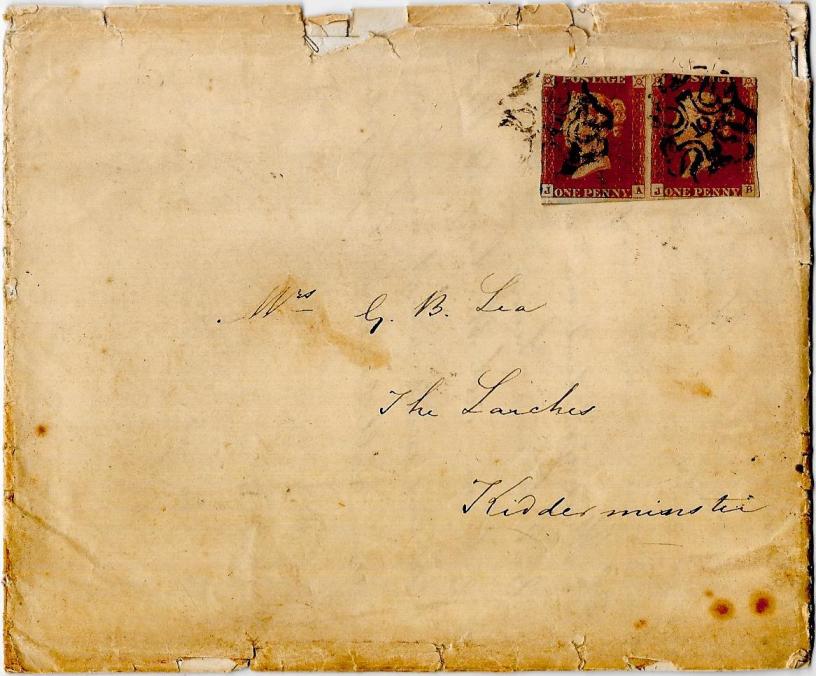 POSTAGE POSTAGE
J ONE PENNY A J ONE PENNY B
Mrs G. B. Lea
The Larches
Kidderminster